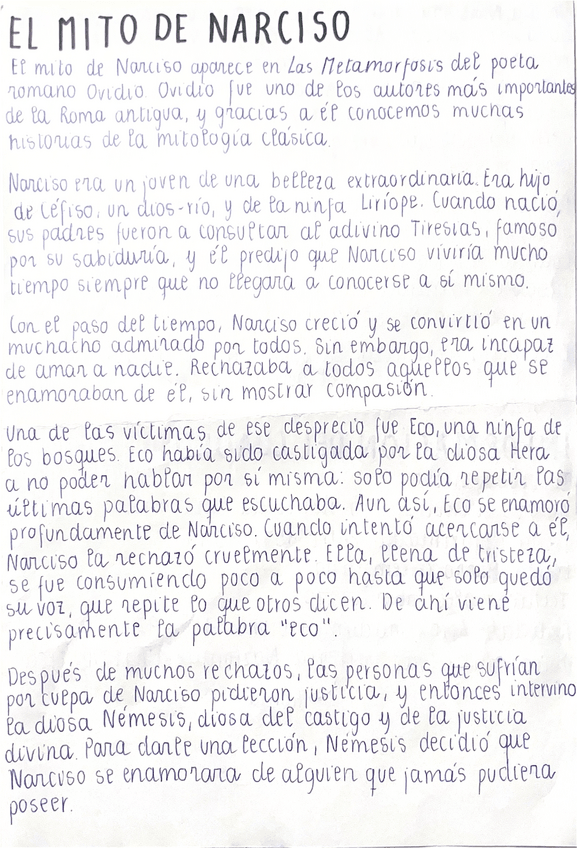 EL MITO DE NARCISO
El mito de Narciso aparece en Las Metamorfosis del poeta
romano Ovidio. Ovidio fue uno de los autores más importantes
de la Roma antigua, y gracias a él conocemos muchas
historias de la mitología clásica.
Narciso era un joven de una belleza extraordinaria. Era hijo
de Céfiso, un dios-río, y de la ninfa Liríope. Cuando nació,
sus padres fueron a consultar al adivino Tiresias, famoso
por su sabiduría, y él predijo que Narciso viviría mucho
tiempo siempre que no llegara a conocerse a sí mismo.
Con el paso del tiempo, Narciso creció y se convirtió en un
muchacho admirado por todos. Sin embargo, era incapaz
de amar a nadie. Rechazaba a todos aquellos que se
enamoraban de él, sin mostrar compasión.
Una de las víctimas de ese desprecio fue Eco, una ninfa de
los bosques. Eco había sido castigada por la diosa Hera
a no poder hablar por sí misma: solo podía repetir las
últimas palabras que escuchaba. Aun así, Eco se enamoró
profundamente de Narciso. Cuando intentó acercarse a él,
Narciso la rechazó cruelmente. Ella, llena de tristeza,
se fue consumiendo poco a poco hasta que solo quedó
su voz, que repite lo que otros dicen. De ahí viene
precisamente la palabra "eco".
Después de muchos rechazos, las personas que sufrían
por culpa de Narciso pidieron justicia, y entonces intervino
la diosa Némesis, diosa del castigo y de la justicia
divina. Para darle una lección, Némesis decidió que
Narciso se enamorara de alguien que jamás pudiera
poseer.